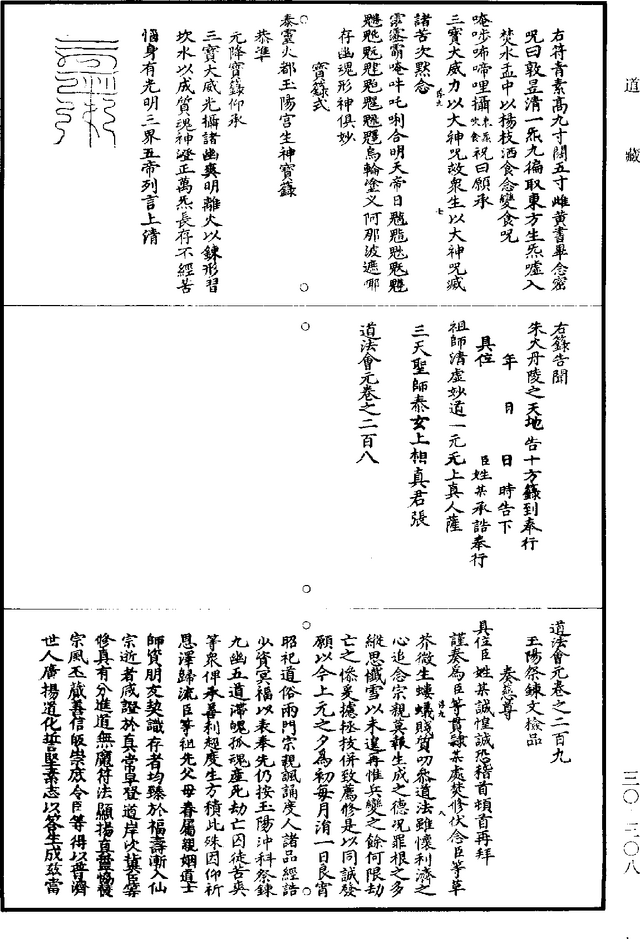 道藏
右符青素高九寸闊五寸雌黃書畢念密
呪曰敦昱清一炁九徧取東方生炁噓入
焚水盂中以楊枝洒食念變食呪
唵哆咘啼哩攝
祝曰願承
三寶大威力以大神呪故眾生以大神呪滅
諸苦次默念
唵吽吒唎合明天帝日
烏輪塗义阿那波遮哪
寶籙式
存幽魂形神俱妙
泰靈火都玉陽宮生神寶籙
恭準
元降寶籙仰承
三寶大威光攝諸幽爽明離火以鍊形習
坎水以成質魂神澄正萬炁長存不經苦
惱身有光明三界五帝列言上清
右籙告聞
朱火丹陵之天地告十方籙到奉行
年 日 日 時告下
具位 臣姓某承誥奉行
祖師清虛妙道一元无上真人薩
三天聖師泰玄上相真君張
道法會元卷之二百八
道法會元卷之二百九
玉陽祭鍊文檢品
奏慈尊
具位臣姓某誠惶誠恐稽首頓首再拜
謹奏為臣等貫隸某處焚修伏念臣等草
芥微生螻蟻賤質叨參道法雖懷利濟之
心追念宗親莫報生成之德况罪根之多
縱思懺雪以未遑再惟兵變之餘何限劫
亡之條吴攄拯技併致薦修是以同誠發
願以今上元之夕為初每月涓一日良宵
昭祀道俗兩門宗親諷誦度人諸品經誥
少資冥福以表奉先仍按玉陽沖科祭鍊
九幽五道滯魄孤魂產死劫亡囚徒苦爽
等眾俾承善利超度生方積此殊因仰祈
恩澤歸流臣等祖先父母眷屬親姻道士
師資朋友契識存者均臻於福壽漸入仙
宗逝者咸證於真常早登道岸次冀臣等
修真有分進道無魔符法顯揚真靈協護
宗風丕藏善信皈崇庶令臣等得以普濟
世人廣揚道化誓堅素志以答生成茲當
三〇-三〇八